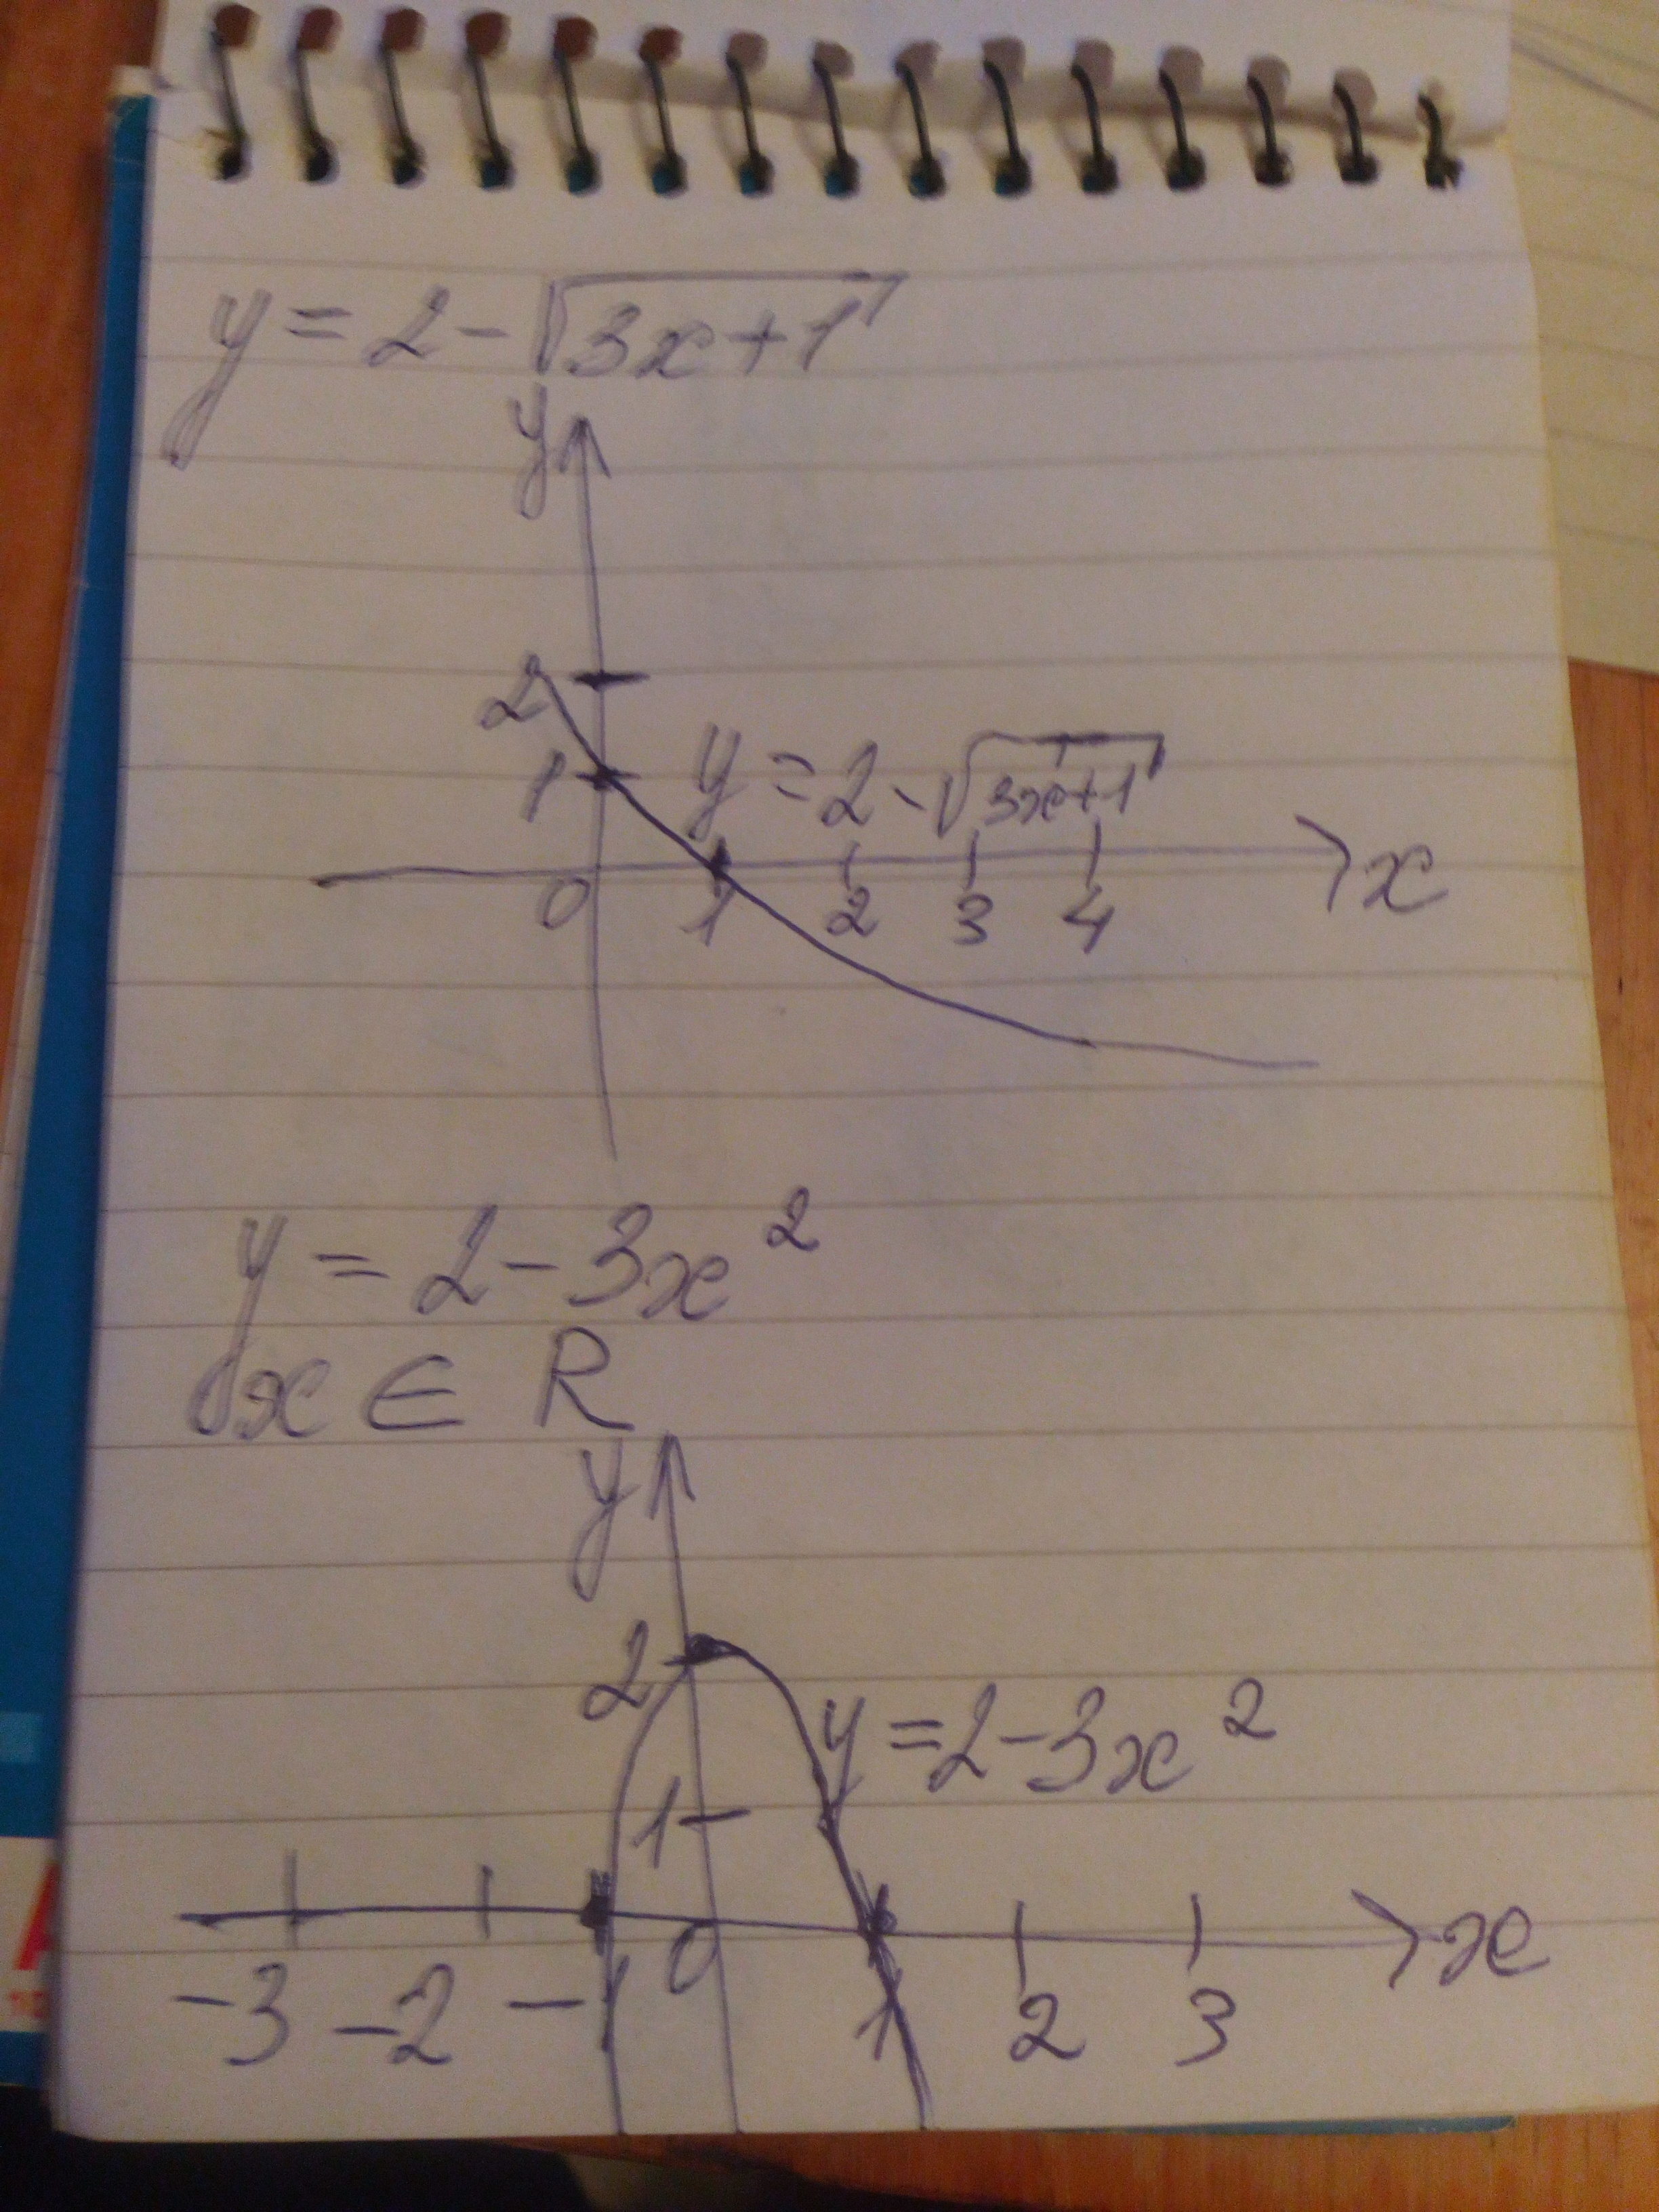 y = 2 - √(3x+1)
y
2
1
y = 2 - √(3x+1)
0 1 2 3 4 x
y = 2 - 3x²
x ∈ R
y
2
y = 2 - 3x²
1
-3 -2 -1 0 1 2 3 x